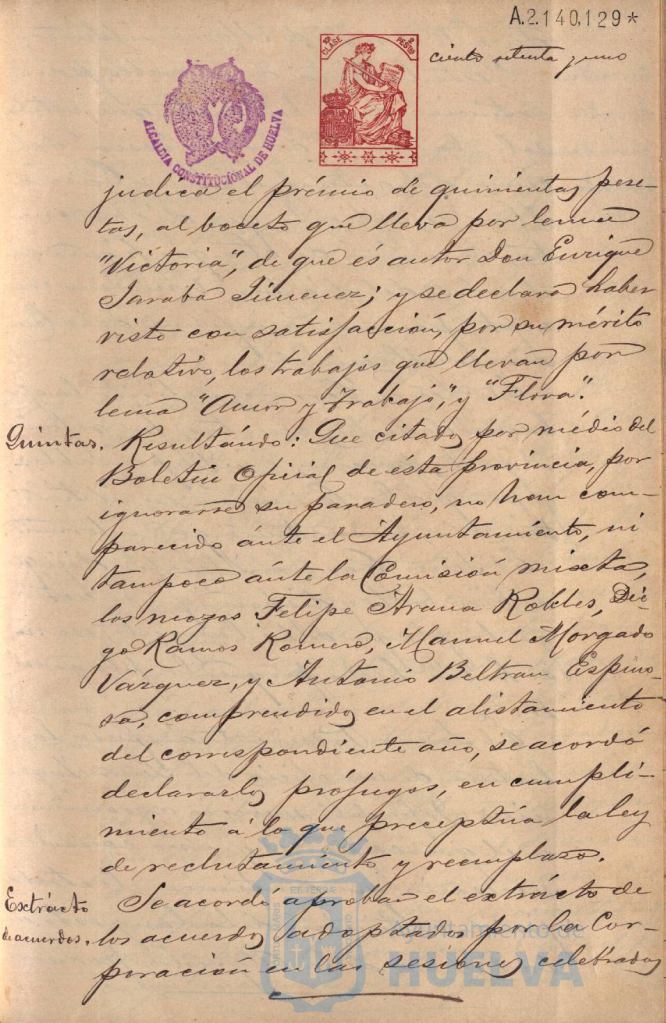 A.2.140,129*
10ª CLASE 2 PESTAS
ciento setenta y uno
ALCALDIA CONSTITUCIONAL DE HUELVA
judica el prémio de quinientas pese-
tas, al boceto que lleva por lema
"Victoria", de que és autor Don Enrique
Jaraba Jimenez; y se declara haber
visto con satisfacción, por su mérito
relativo, los trabajos que llevan por
lema "Amor y Trabajo", y "Flora".
Quintas. Resultándo: Que citados por médio del
Boletin Oficial de ésta provincia, por
ignorarse su paradero, no han com-
parecido ánte el Ayuntamiento, ni
tampoco ánte la Comisión mixta,
los mozos Felipe Arana Robles, Die-
go Ramos Romero, Manuel Morgado
Vázquez, y Antonio Beltran Espino-
sa, comprendidos en el alistamiento
del correspondiente año, se acordó
declararlos prófugos, en cumpli-
miento á lo que preceptúa la ley
de reclutamiento y reemplazo.
Extrácto de acuerdos. Se acordó aprobar el extrácto de
los acuerdos adoptados por la Cor-
poración en las sesiones celebradas
Ayuntamiento de
HUELVA